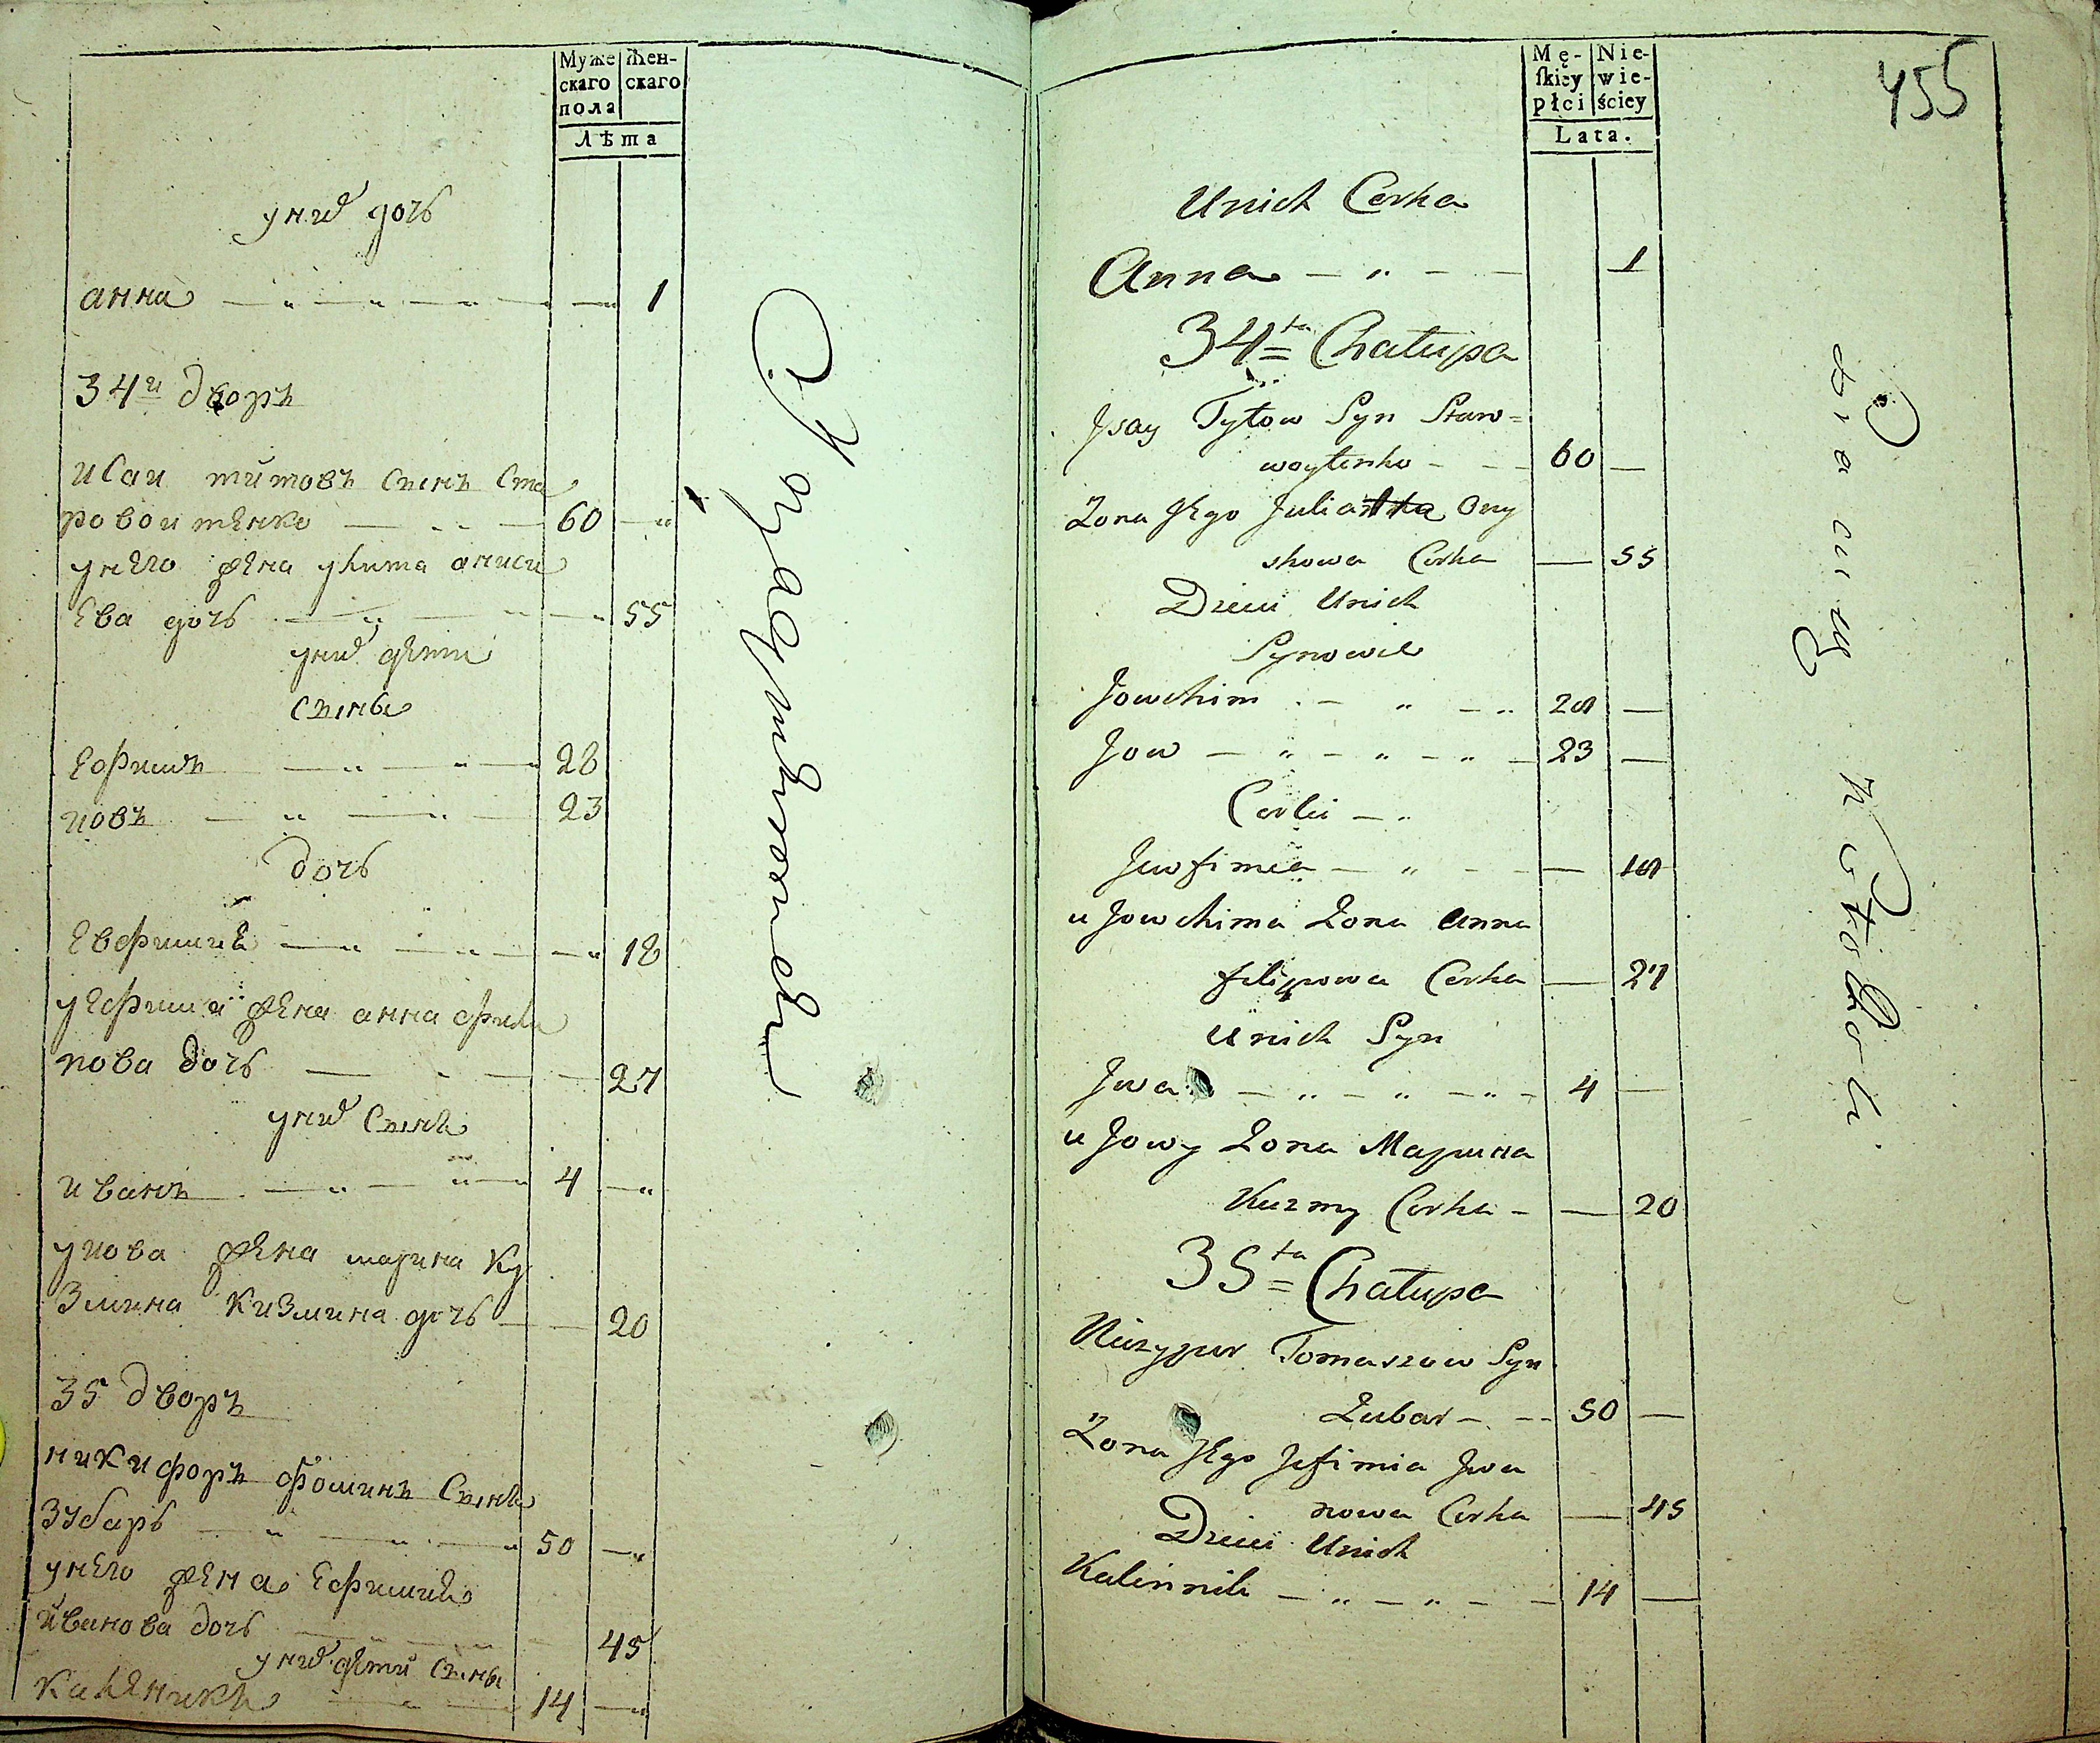 Муже
скаго
пола
Жен-
скаго
Лѣта
у них дочь
анна 1
34й дворъ
исаи титовъ сынъ Ста
ровоитенко 60
у него жена улита аниси
ева дочь 55
у них дети
сыны
ефимъ 28
иовъ 23
дочь
евфимиѣ 18
у ефима жена анна фили
пова дочь 27
у них сынъ
иванъ 4
у иова жена марина Ку
змина кизмина дочь 20
35 дворъ
никифоръ фоминъ сынъ
Зубарь 50
у него жена ефимиѣ
иванова дочь 45
у них дети сыны
каленикъ 14
Mę-
skiey
płci
Nie-
wie-
ściey
Lata.
455
Unich Corka
Anna 1
34ta Chałupa
Jsay Tytow Syn Staro=
woytenko 60
Zona Jego Julia Ony
skowa Corka 55
Dzieci Unich
Synowie
Jowchim 28
Jow 23
Corki
Jewfimia 18
u Jowchima Zona Anna
filipowa Corka 27
Unich Syn
Jwa 4
u Jowy Zona Марина
Kuzmy Corka 20
35ta Chałupa
Niczypor Tomaszow Syn
Zubar 50
Zona Jego Jefimia Jwa
nowa Corka 45
Dzieci Unich
Kalinnik 14